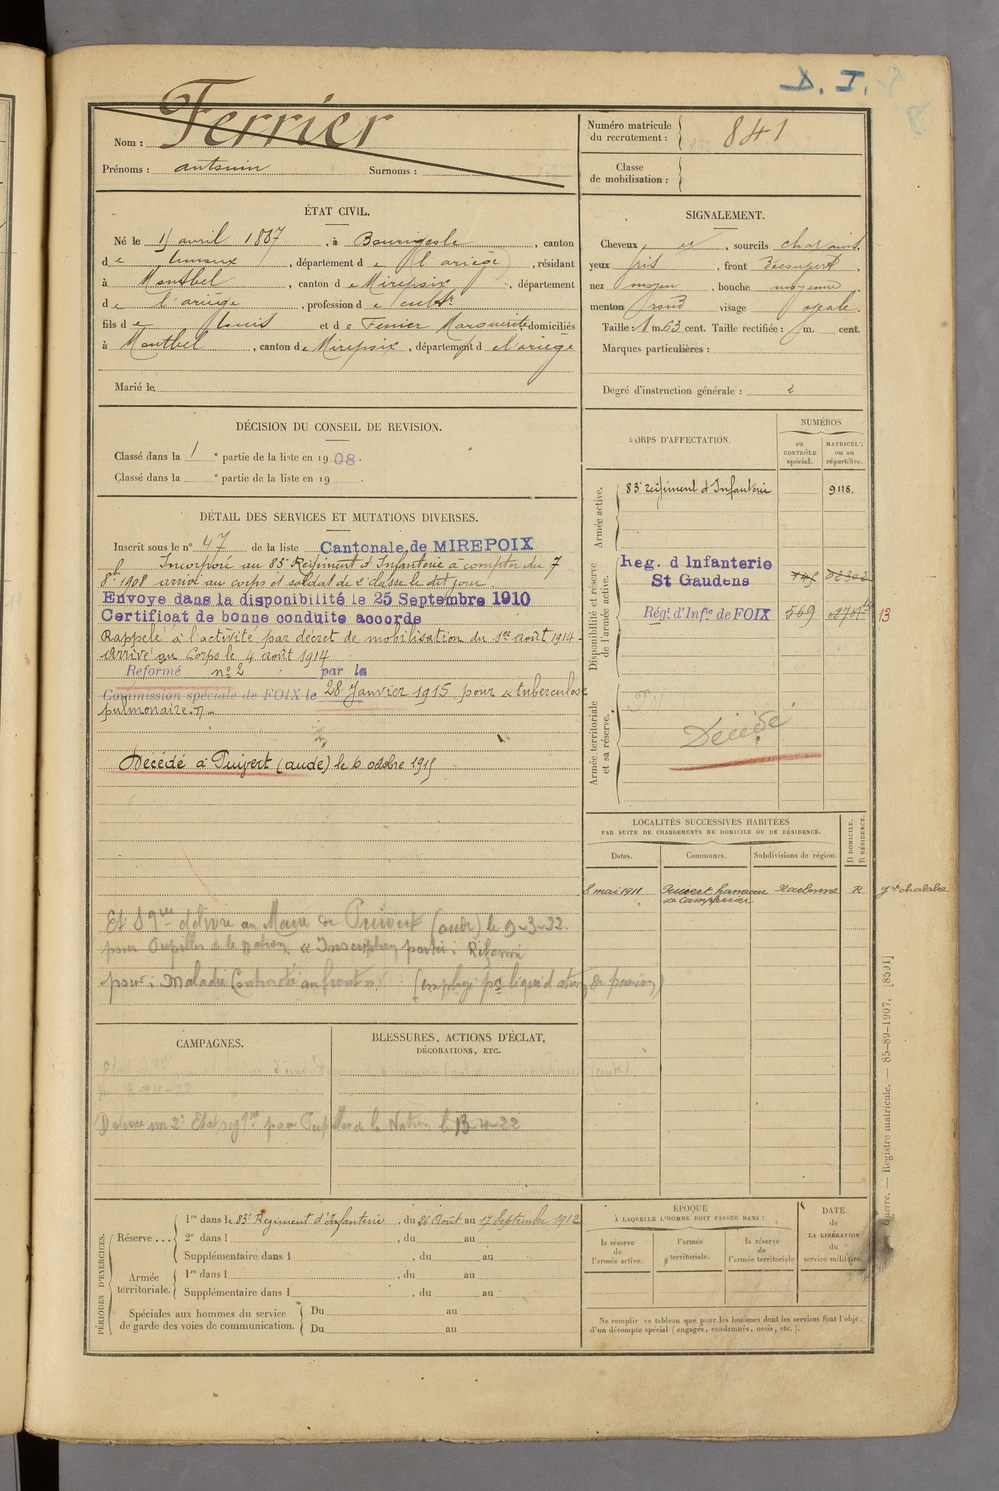 D. I.
Nom : Ferrier
Prénoms : antonin Surnoms :
Numéro matricule du recrutement : 841
Classe de mobilisation :
ÉTAT CIVIL.
Né le 15 avril 1887, à Bourigeole, canton
de Limoux, département de l'ariege, résidant
à Montbel, canton de Mirepoix, département
de l'ariége, profession de cultr
fils de Louis et de Ferrier Marguerite domiciliés
à Montbel, canton de Mirepoix, département de l'ariége
Marié le
SIGNALEMENT.
Cheveux et, sourcils chatains
yeux gris, front découvert,
nez moyen, bouche moyenne,
menton rond visage ovale.
Taille : 1 m. 63 cent. Taille rectifiée : m. cent.
Marques particulières :
Degré d'instruction générale : 2
DÉCISION DU CONSEIL DE REVISION.
Classé dans la 1 e partie de la liste en 1908.
Classé dans la e partie de la liste en 19
DÉTAIL DES SERVICES ET MUTATIONS DIVERSES.
Inscrit sous le n° 47 de la liste Cantonale de MIREPOIX
Incorporé au 83e Régiment d'Infanterie à compter du 7
8bre 1908 arrivé au corps et soldat de 2e classe le dit jour.
Envoye dans la disponibilité le 25 Septembre 1910
Certificat de bonne conduite accorde
Rappelé à l'activité par décret de mobilisation du 1er août 1914-
Arrivé au Corps le 4 août 1914
Reformé n° 2 par la
Commission spéciale de FOIX le 28 Janvier 1915 pour "tuberculose
pulmonaire"
Décédé à Puivert (aude) le 6 octobre 1915
Et S gne délivré au Maire de Puivert (aude) le 9-3-22.
pour Pupilles de la Nation « Inscription portée : Réformé
pour : Maladie Contractée au front ». (employé pr liquidation de pension)
CORPS D'AFFECTATION.
NUMÉROS
au CONTRÔLE spécial.
MATRICULE ou au répertoire.
Armée active.
83e régiment d'Infanterie 9118.
Disponibilité et réserve de l'armée active.
Reg. d Infanterie
St Gaudens
Régt. d'Infie de FOIX 569 13
Armée territoriale et sa réserve.
Décédé
LOCALITÉS SUCCESSIVES HABITÉES
PAR SUITE DE CHANGEMENTS DE DOMICILE OU DE RÉSIDENCE.
Dates. Communes. Subdivisions de région. D DOMICILE. R RÉSIDENCE.
8 mai 1911 Puivert hameau Narbonne R gie chalabre
de Campferrier
CAMPAGNES.
BLESSURES, ACTIONS D'ÉCLAT,
DÉCORATIONS, ETC.
Délivré un 2e Etat sigque pour Pupilles de la Nation le 13-4-22
PÉRIODES D'EXERCICES.
Réserve ... 1re dans le 83e Régiment d'Infanterie, du 26 Août au 17 Septembre 1912
2e dans l , du au
Supplémentaire dans l , du au
Armée territoriale. 1re dans l , du au
Supplémentaire dans l , du au
Spéciales aux hommes du service de garde des voies de communication. Du au
Du au
EPOQUE
À LAQUELLE L'HOMME DOIT PASSER DANS :
la réserve de l'armée active. l'armée territoriale. la réserve de l'armée territoriale
DATE de LA LIBÉRATION du service militaire.
Ne remplir ce tableau que pour les hommes dont les services font l'objet
d'un décompte spécial (engagés, condamnés, omis, etc.).
Guerre. — Registre matricule. — 85-89-1907. [8591]